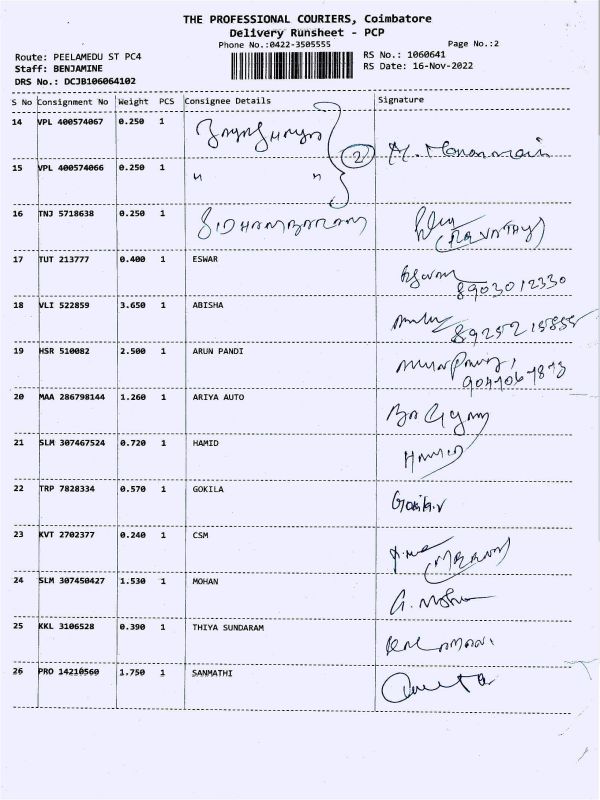 THE PROFESSIONAL COURIERS, Coimbatore
Delivery Runsheet - PCP
Phone No.:0422-3505555
Page No.:2
Route: PEELAMEDU ST PC4
RS No.: 1060641
Staff: BENJAMINE
RS Date: 16-Nov-2022
DRS No.: DCJB106064102
S No Consignment No Weight PCS Consignee Details Signature
14 VPL 400574067 0.250 1
2
15 VPL 400574066 0.250 1 " "
16 TNJ 5718638 0.250 1 SIDHAMBARAM
(REVATHY)
17 TUT 213777 0.400 1 ESWAR
8903012330
18 VLI 522859 3.650 1 ABISHA
19 HSR 510082 2.500 1 ARUN PANDI
20 MAA 286798144 1.260 1 ARIYA AUTO
21 SLM 307467524 0.720 1 HAMID Hamid
22 TRP 7828334 0.570 1 GOKILA
23 KVT 2702377 0.240 1 CSM
24 SLM 307450427 1.530 1 MOHAN G. Mohan
25 KKL 3106528 0.390 1 THIYA SUNDARAM
26 PRO 14210560 1.750 1 SANMATHI